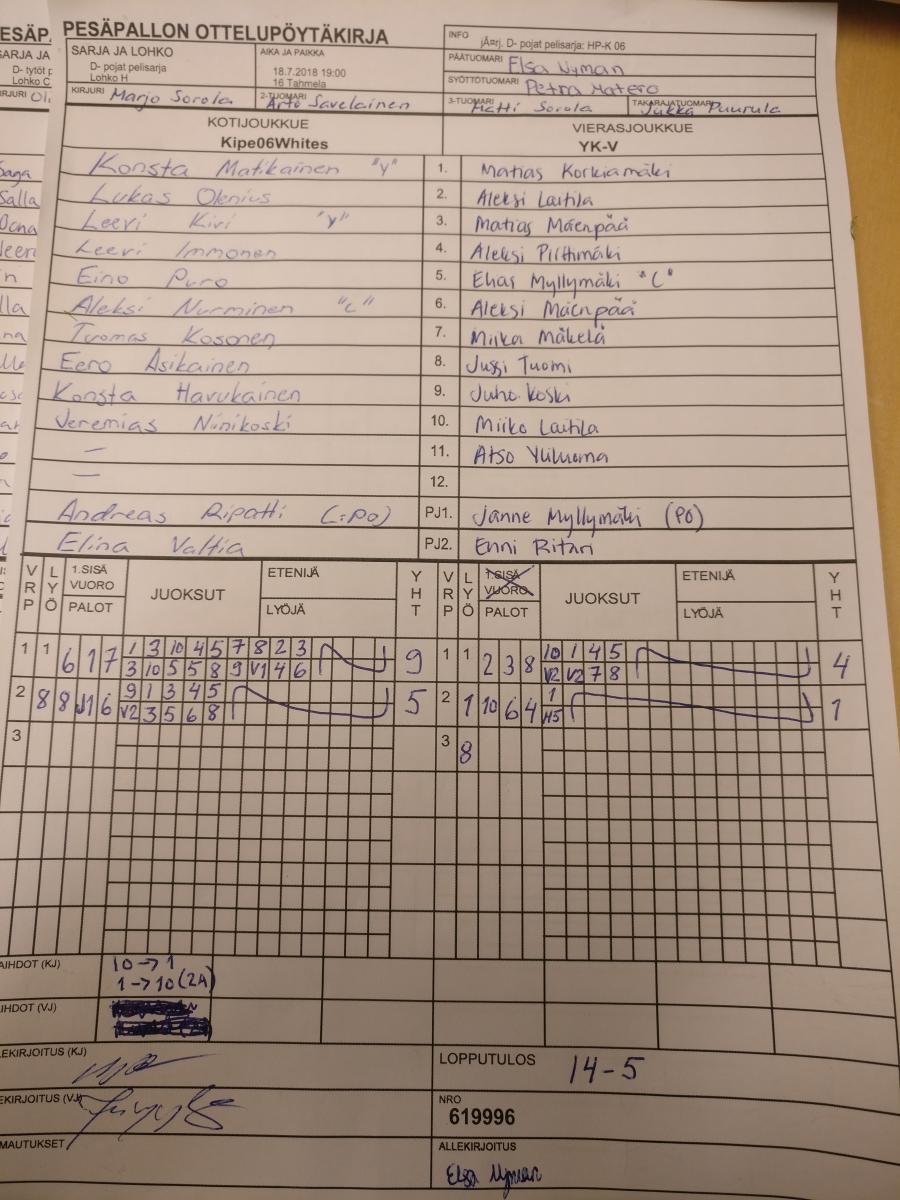 PESÄPALLON OTTELUPÖYTÄKIRJA
SARJA JA LOHKO
D- pojat pelisarja
Lohko H
AIKA JA PAIKKA
18.7.2018 19:00
16 Tahmela
INFO
jÄ¤rj. D- pojat pelisarja: HP-K 06
PÄÄTUOMARI Elsa Nyman
SYÖTTÖTUOMARI Petra Matero
KIRJURI Marjo Sorola
2-TUOMARI Arto Savelainen
3-TUOMARI Matti Sorola
TAKARAJATUOMARI Jukka Puurula
KOTIJOUKKUE
Kipe06Whites
VIERASJOUKKUE
YK-V
Konsta Matikainen "Y" 1. Matias Korkiamäki
Lukas Olenius 2. Aleksi Laitila
Leevi Kivi "Y" 3. Matias Mäenpää
Leevi Immonen 4. Aleksi Piittimäki
Eino Puro 5. Elias Myllymäki "C"
Aleksi Nurminen "C" 6. Aleksi Mäenpää
Tuomas Kosonen 7. Miika Mäkelä
Eero Asikainen 8. Jussi Tuomi
Konsta Havukainen 9. Juho Koski
Veremias Niinikoski 10. Miiko Laitila
— 11. Atso Yliluoma
— 12.
Andreas Ripatti (:PO) PJ1. Janne Myllymäki (PO)
Elina Valtia PJ2. Enni Ritari
VRP LYÖ 1.SISÄ VUORO PALOT JUOKSUT ETENIJÄ LYÖJÄ YHT VRP LYÖ 1.SISÄ VUORO PALOT JUOKSUT ETENIJÄ LYÖJÄ YHT
1 1 6 1 7 1 3 10 4 5 7 8 2 3 9 1 1 2 3 8 10 1 4 5 4
3 10 5 5 8 9 V1 4 6 V2 V2 7 8
2 8 8 J1 6 9 1 3 4 5 5 2 1 10 6 4 1 1
V2 3 5 6 8 H5
3 3 8
AIHDOT (KJ) 10 → 1
1 → 10 (2A)
IHDOT (VJ)
LEKIRJOITUS (KJ)
LOPPUTULOS 14-5
EKIRJOITUS (VJ)
NRO
619996
MAUTUKSET
ALLEKIRJOITUS
Elsa Nyman